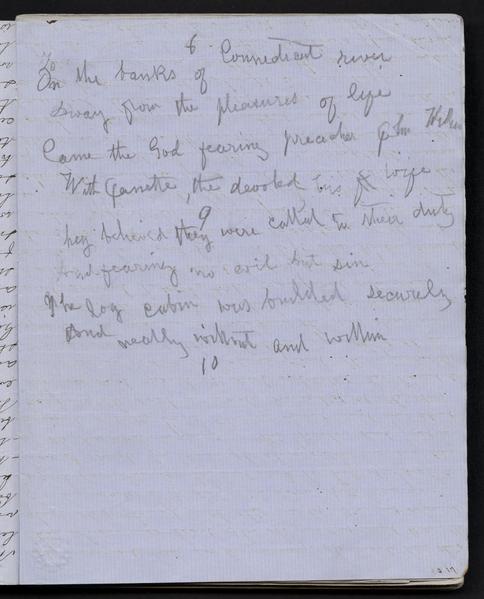 8
To
On the banks of Connecticut river
Away from the pleasures of life
Came the God fearing preacher John
With Janette, the devoted, his wife
9
hey believed they were called to their duty
And fearing no evil but sin
The log cabin was builded securely
And neatly without and within
10